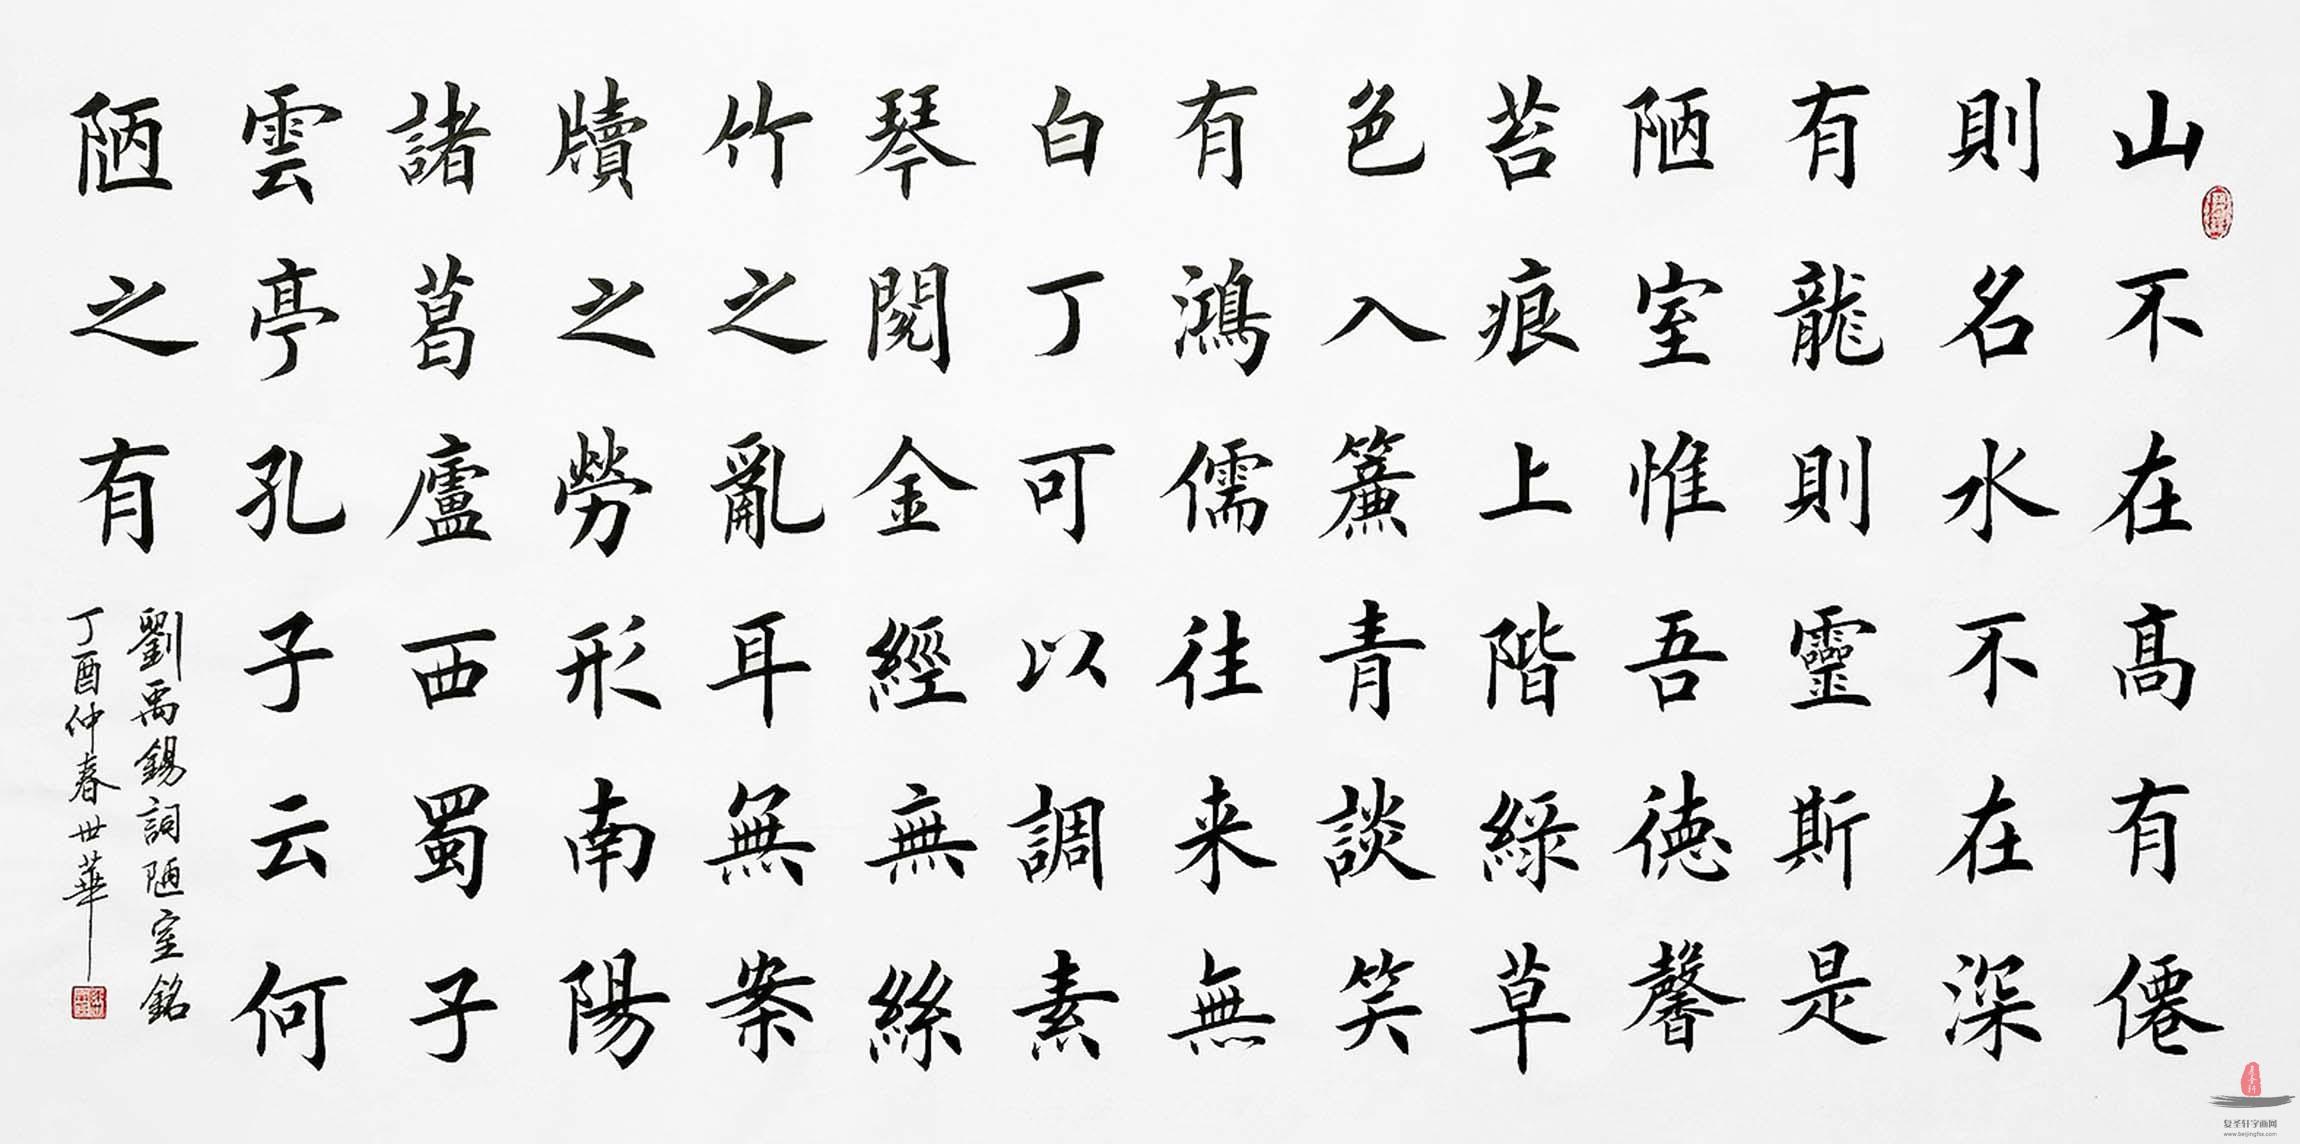 山不在高有僊
則名水不在深
有龍則靈斯是
陋室惟吾德馨
苔痕上階緑草
色入簾青談笑
有鴻儒往来無
白丁可以調素
琴閱金經無絲
竹之亂耳無案
牘之勞形南陽
諸葛廬西蜀子
雲亭孔子云何
陋之有
劉禹錫詞陋室銘
丁酉仲春世華
复圣轩字画网
www.beijingfsx.com